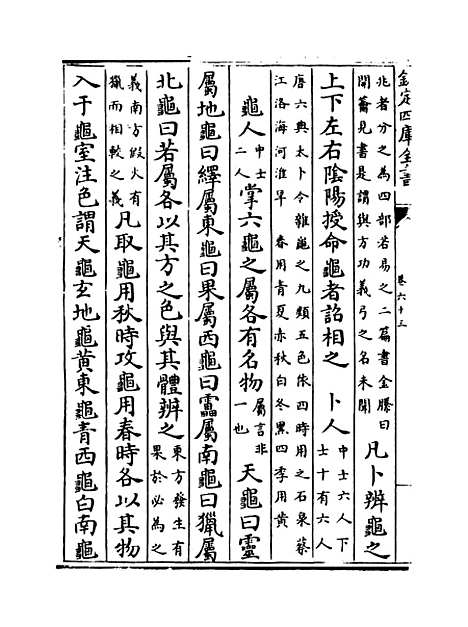 欽定四庫全書
卷六十三
兆者分之為四部若易之二篇書金縢曰
開籥見書是謂與方功義弓之名未聞
凡卜辨龜之
上下左右陰陽授命龜者詔相之　卜人
中士六人下
士十有六人
唐六典太卜令雜龜之九類五色依四時用之石泉蔡
江洛海河淮旱　春用青夏赤秋白冬黑四季用黄
龜人
中士
二人
掌六龜之屬各有名物
屬言非
一也
天龜曰靈
屬地龜曰繹屬東龜曰果屬西龜曰靁屬南龜曰獵屬
北龜曰若屬各以其方之色與其體辨之
東方發生有
果於必為之
義南方假火有
獵而相較之義
凡取龜用秋時攻龜用春時各以其物
入于龜室注色謂天龜玄地龜黄東龜青西龜白南龜